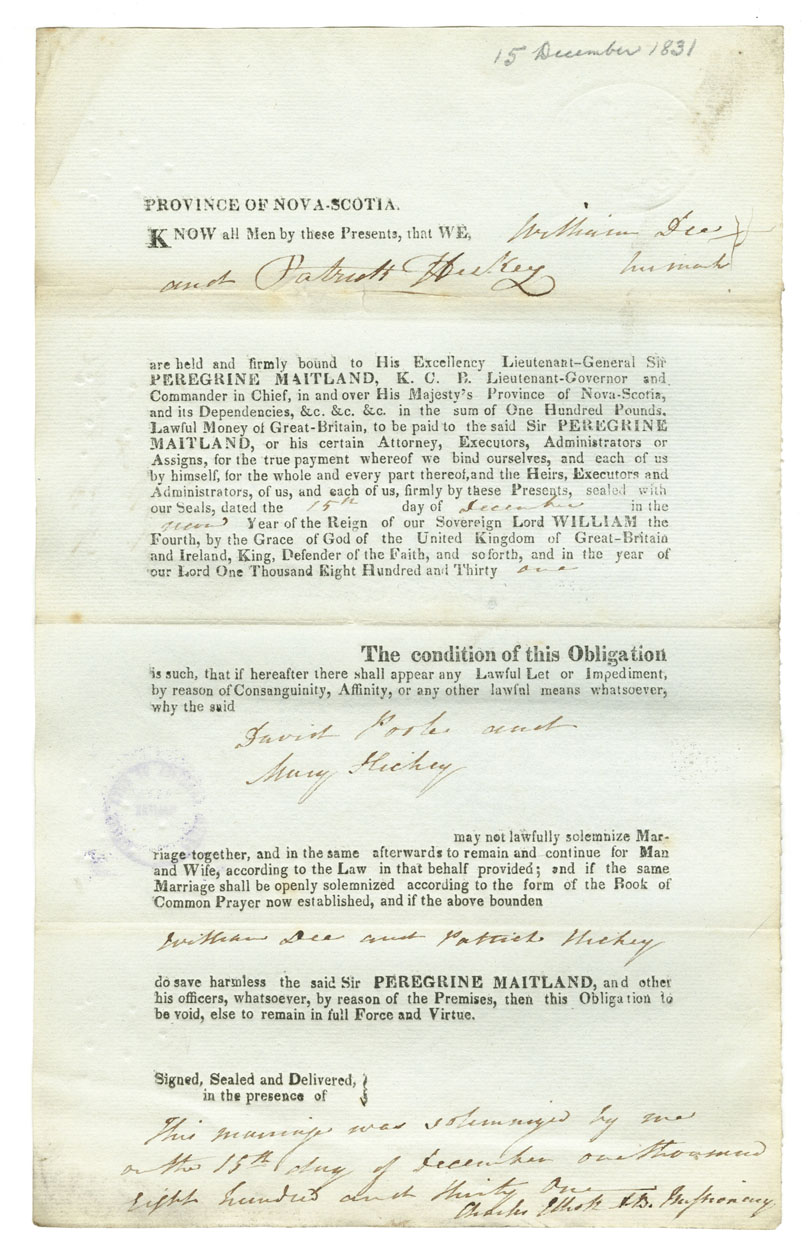 15 December 1831
PROVINCE OF NOVA-SCOTIA.
KNOW all Men by these Presents, that WE, William Dee
his mark
and Patrick Hickey
are held and firmly bound to His Excellency Lieutenant-General Sir
PEREGRINE MAITLAND, K. C. B. Lieutenant-Governor and
Commander in Chief, in and over His Majesty's Province of Nova-Scotia,
and its Dependencies, &c. &c. &c. in the sum of One Hundred Pounds,
Lawful Money of Great-Britain, to be paid to the said Sir PEREGRINE
MAITLAND, or his certain Attorney, Executors, Administrators or
Assigns, for the true payment whereof we bind ourselves, and each of us
by himself, for the whole and every part thereof, and the Heirs, Executors and
Administrators, of us, and each of us, firmly by these Presents, sealed with
our Seals, dated the 15th day of December in the
Year of the Reign of our Sovereign Lord WILLIAM the
Fourth, by the Grace of God of the United Kingdom of Great-Britain
and Ireland, King, Defender of the Faith, and soforth, and in the year of
our Lord One Thousand Eight Hundred and Thirty one
The condition of this Obligation
is such, that if hereafter there shall appear any Lawful Let or Impediment,
by reason of Consanguinity, Affinity, or any other lawful means whatsoever,
why the said
David Poole and
Mary Hickey
may not lawfully solemnize Mar-
riage together, and in the same afterwards to remain and continue for Man
and Wife, according to the Law in that behalf provided; and if the same
Marriage shall be openly solemnized according to the form of the Book of
Common Prayer now established, and if the above bounden
William Dee and Patrick Hickey
do save harmless the said Sir PEREGRINE MAITLAND, and other
his officers, whatsoever, by reason of the Premises, then this Obligation to
be void, else to remain in full Force and Virtue.
Signed, Sealed and Delivered,
in the presence of
This marriage was solemnized by me
on the 15th day of December one thousand
eight hundred and thirty one
Charles Elliott Missionary